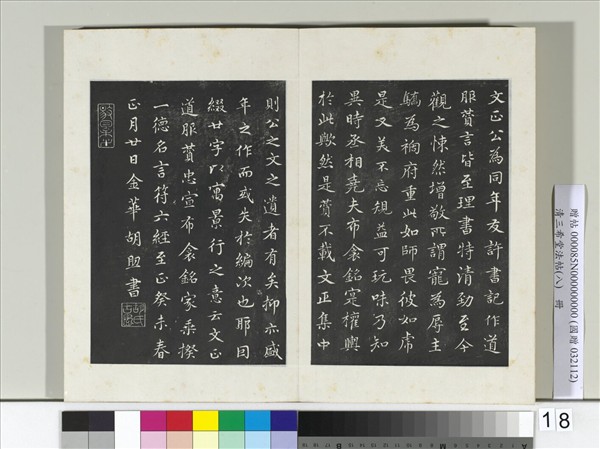 文正公為同年友許書記作道
服贊言皆至理書特清勁至今
觀之悚然增敬所謂寵為辱主
驕為禍府重此如師畏彼如虎
是又美不忘規益可玩味乃知
異時丞相堯夫布衾銘寔權輿
於此歟然是贊不載文正集中
則公之文之遺者有矣抑亦盛
年之作而或失於編次也耶因
綴廿字以寓景行之意云文正
道服贊忠宣布衾銘家乘揆
一德名言符六經至正癸未春
正月廿日金華胡助書
贈帖000085N000000000 (國贈 032112)
清三希堂法帖(八) 冊
18